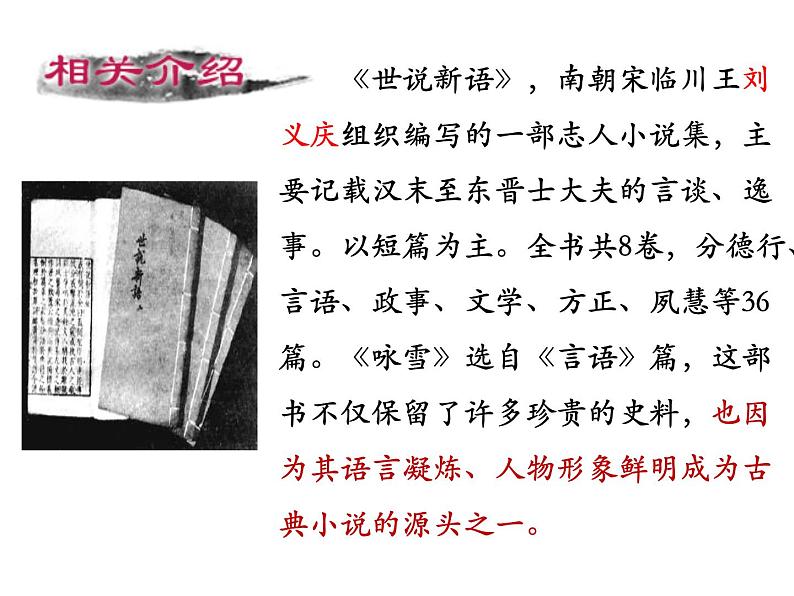 相关介绍
《世说新语》，南朝宋临川王刘
义庆组织编写的一部志人小说集，主
要记载汉末至东晋士大夫的言谈、逸
事。以短篇为主。全书共8卷，分德行、
言语、政事、文学、方正、夙慧等36
篇。《咏雪》选自《言语》篇，这部
书不仅保留了许多珍贵的史料，也因
为其语言凝炼、人物形象鲜明成为古
典小说的源头之一。
世说新语